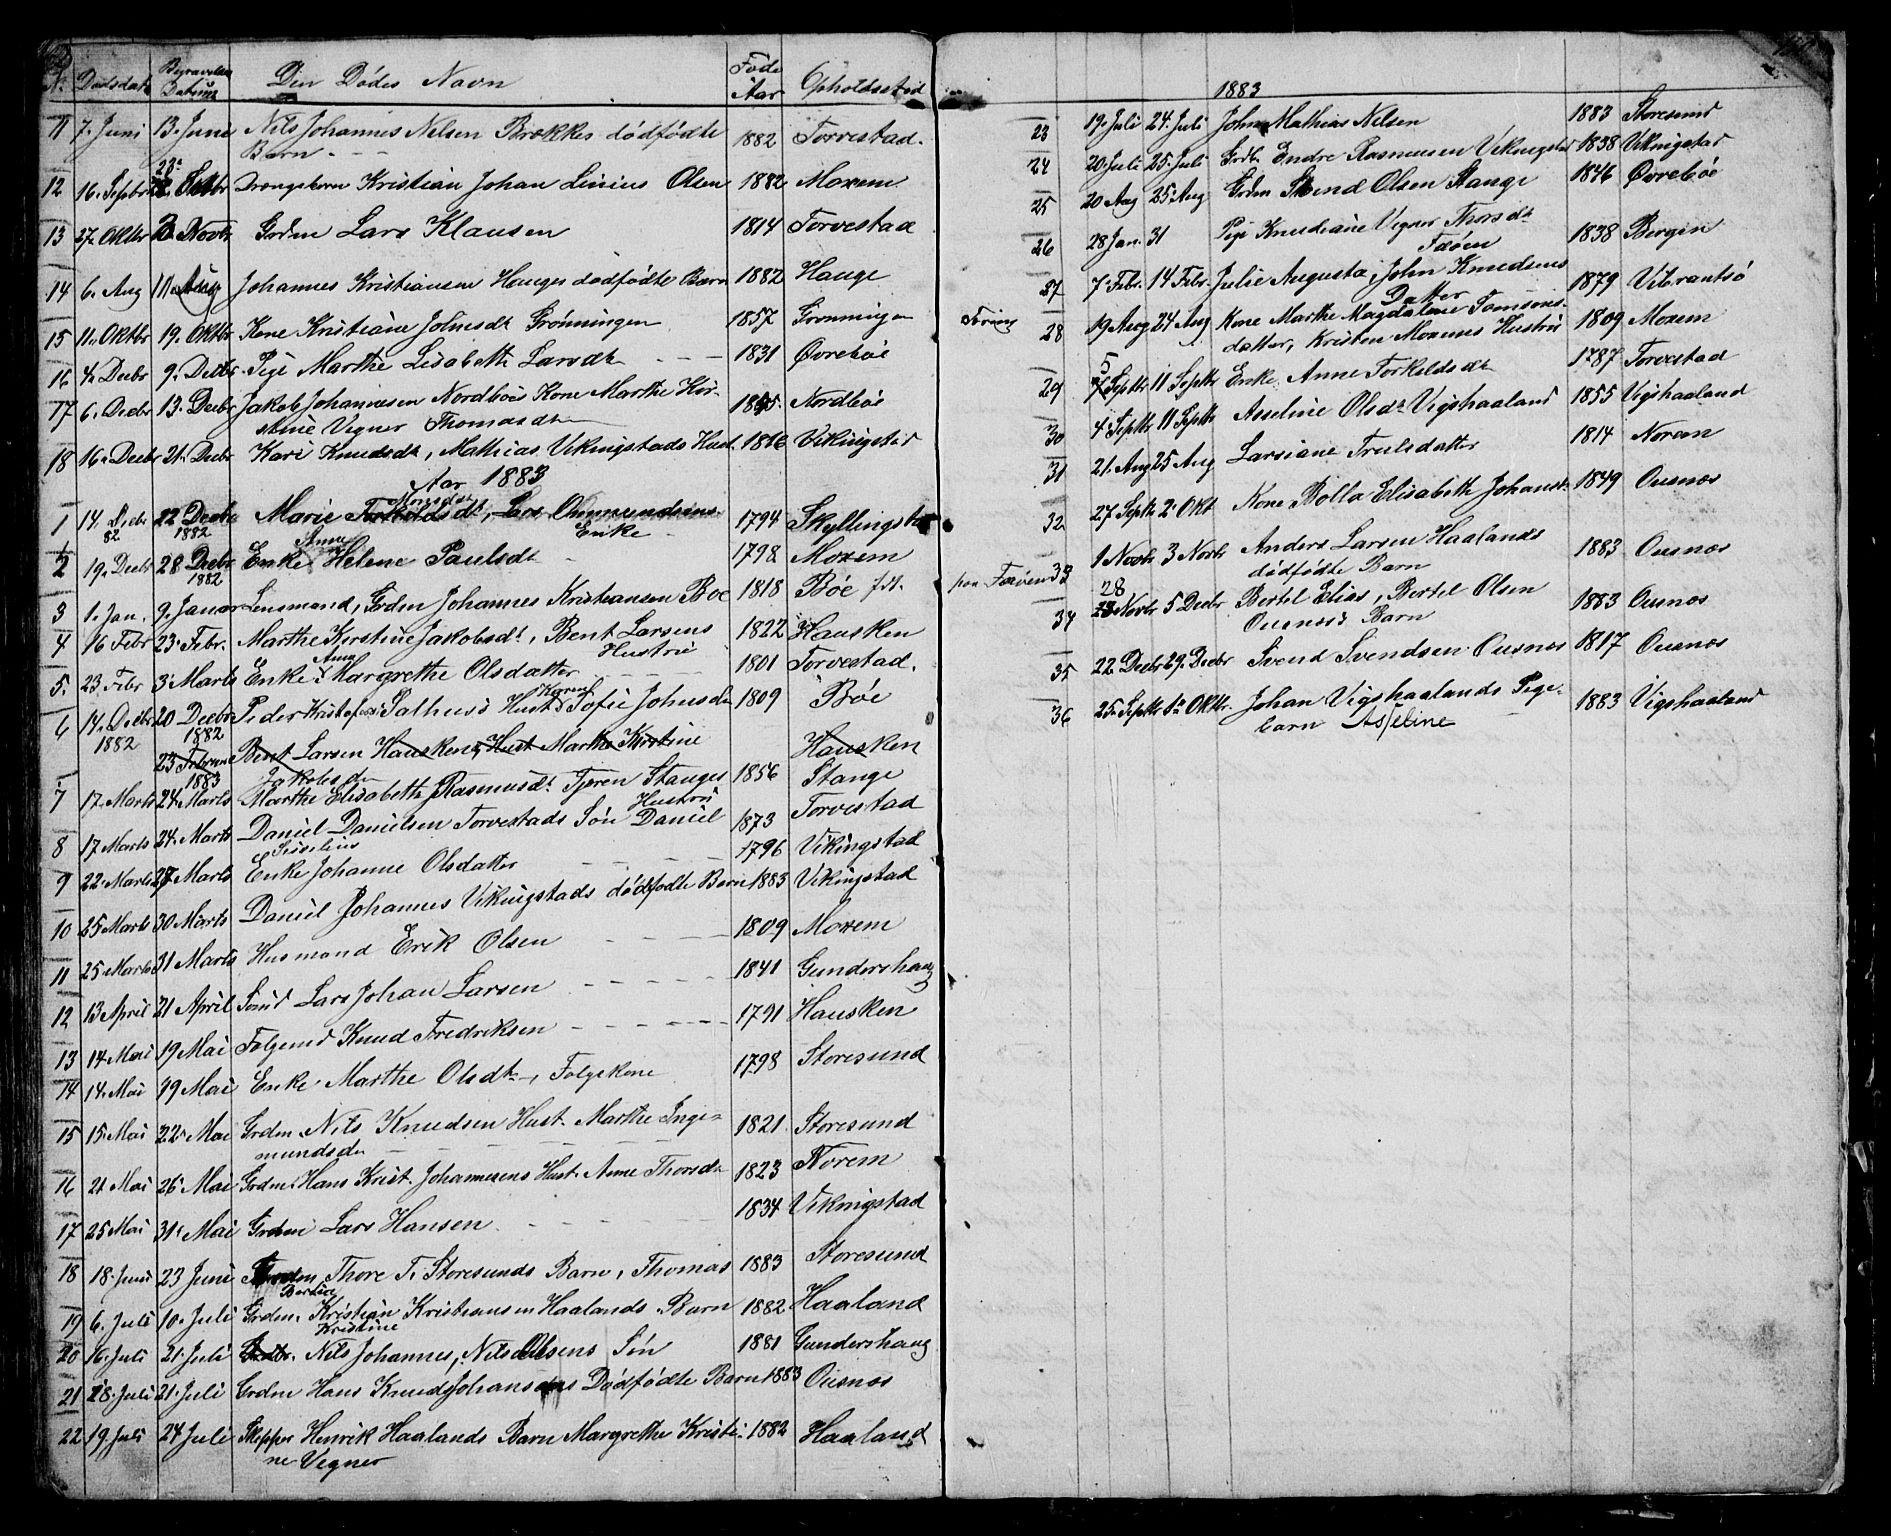 N. Dødsdato Begravelses Datum Den Dødes Navn Føde Aar Opholdssted
11 7. Juni 13. Juni Nils Johannes Nelsen Brekkes dødfødte 1882 Torvestad.
Barn
12 16. Septbr 23 Setbr Drengebarn Kristian Johan Linius Olsen 1882 Moxem
13 27. Oktbr 3 Novbr Grdm Lars Klausen 1814 Torvestad
14 6. Aug 11. Aug Johannes Kristiansen Hauges dødfødte Barn 1882 Hauge
15 11. Oktbr 19. Oktbr Kone Kristiane Johnsdt Grønningen 1857 Grønningen
16 4. Decbr 9. Decbr Pige Marthe Lisabeth Larsdt 1831 Øvrebøe
17 6. Decbr 13. Decbr Jakob Johannesen Nordbøes Kone Marthe Kir- Nordbøe
stine Vigner Thomasdt
18 16. Decbr 21. Decbr Kari Knudsdt, Mathias Vikingstads Hust. Vikingstad
Aar 1883
Monsdt
1 14. Decbr 82 22 Decbr Marie Torkildsdt, Lars Ommundsens 1794 Skyllingstad
1882 Enke
Anne
2 19. Decbr 28 Decbr Enke Helene Paulsdt 1798 Moxem
1882
3 1. Jan. 9. Januar Lensmand, Grdm Johannes Kristiansen Bøe 1818 Bøe
4 16 Febr 23. Febr. Marthe Kirstine Jakobsdt, Bent Larsens 1822 Hausken
Hustru
Anna
5. 23. Febr 3. Marts Enke Margrethe Olsdatter 1801 Torvestad.
Karen
6 14. Decbr 20 Decbr Peder Kristofers Salhus's Hust. Sofie Johnsdt 1809 Bøe
1882 1882
23 Februar Bent Larsen Hauskens Hust. Marthe Kirstine Hausken
1883 Jakobsdt
7 17. Marts 24. Marts Marthe Elisabeth Rasmusdt Tjøren Stanges 1856 Stange
Hustru
8 17 Marts 24. Marts Daniel Danielsen Torvestads Søn Daniel 1873 Torvestad
Sisselius
9 22. Marts 27 Marts Enke Johanne Olsdatter 1796 Vikingstad
10 25 Marts 30 Marts Daniel Johannes Vikingstads dødfødte Barn 1883 Vikingstad
11 25 Marts 31 Marts Husmand Erik Olsen 1809 Moxem
12 13 April 21 April Lars Johan Larsen 1841 Gundershaug
13 14 Mai 19 Mai Følgemd Knud Fredriksen 1791 Hausken
14 14. Mai 19 Mai Enke Marthe Olsdt, Følgekone 1798 Storesund
15 15 Mai 22. Mai Grdm. Nils Knudsen Hust. Marthe Inge- 1821. Storesund
mundsdt
16 21 Mai 26. Mai Grdm. Hans Krist. Johannesens Hust. Anne Thorsdt 1823 Norem
17 25 Mai 31. Mai Grdm Lars Hansen 1834 Vikingstad
18 18. Juni 23 Juni Grdm, Thore T. Storesunds Barn, Thomas 1883 Storesund
Bertine
19 6. Juli 10. Juli Grdm, Kristian Kristiansen Haalands Barn 1882 Haaland
Kristine
20 16. Juli 21. Juli Nils Johannes, Nils Olsens Søn 1881 Gundershaug
21 18. Juli 21. Juli Grdm Hans Knud Johansens Dødfødte Barn 1883 Ousnes
22 19. Juli 24 Juli Skipper Henrik Haalands Barn Margrethe Kristi- 1882 Haaland
ne Vegner
1883
23 19. Juli 24. Juli John Mathias Nilsen 1883 Storesund
24 20. Juli 25. Juli Grdb. Endre Rasmusen Vikingstad 1838 Vikingstad
25 20 Aug 25 Aug Grdm Svend Olsen Stange 1846 Øvrebøe
26 28 Jan. 31 Pige Knudiane Vigner Thorsdt 1838 Bergen
Færøen
27 7. Febr. 14 Febr. Julie Augusta, John Knudsens 1879 Vibrantsø
Datter
28 19 Aug 24 Aug Kone Marthe Magdalene Tomines- 1809 Moxem
datter, Kristen Moxems Hustru
29 5 Septbr 11 Septbr Enke Anne Torkeldsdt 1787 Torvestad
30 4 Septbr 11 Septbr Asseline Olsdt Vigshaaland 1855 Vigshaaland
31 21. Aug 25 Aug Larsiane Trulsdatter 1814 Norem
32 27 Septbr 2. Okt Kone Bolla Elisabeth Johansdt 1849 Ousnes
paa Færøen 33 1 Novbr 3 Novbr Anders Larsen Haalands 1883 Ousnes
dødfødte Barn
34 28 Novbr 5 Decbr Bertel Elias, Bertel Olsen 1883 Ousnes
Ousnes's Barn
35 22 Decbr 29. Decbr Svend Svendsen Ousnes 1817 Ousnes
36 25. Septbr 1. Oktbr. Johan Vigshaalands Pige- 1883 Vigshaaland
barn Asseline